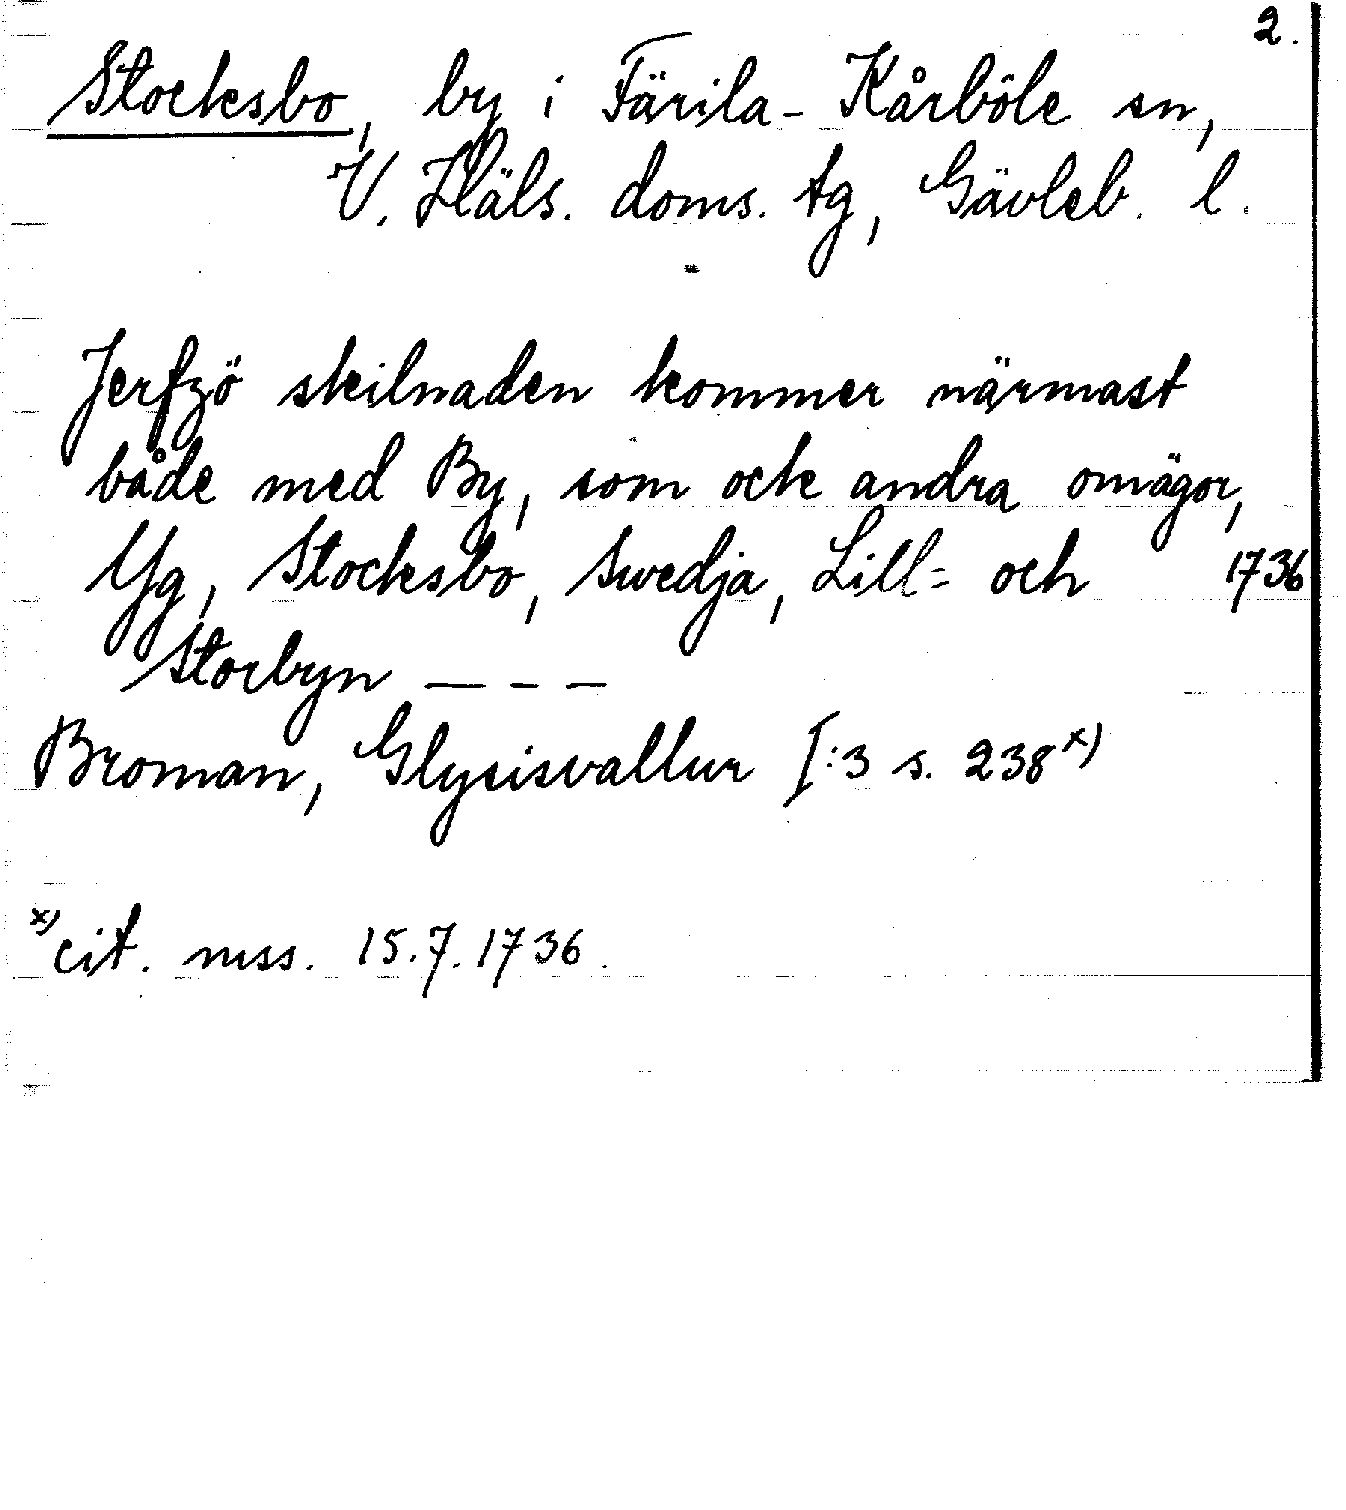 2.
Stocksbo, by i Färila-Kårböle sn,
V. Häls. doms. tg, Gävleb. l.
Jerfzö skilnaden kommer närmast
både med By, som ock andra omägor,
Yg, Stocksbo, Swedja, Lill= och 1736
Storbyn — - —
Broman, Glysisvallur I:3 s. 238 x)
x) cit. mss. 15.7.1736.